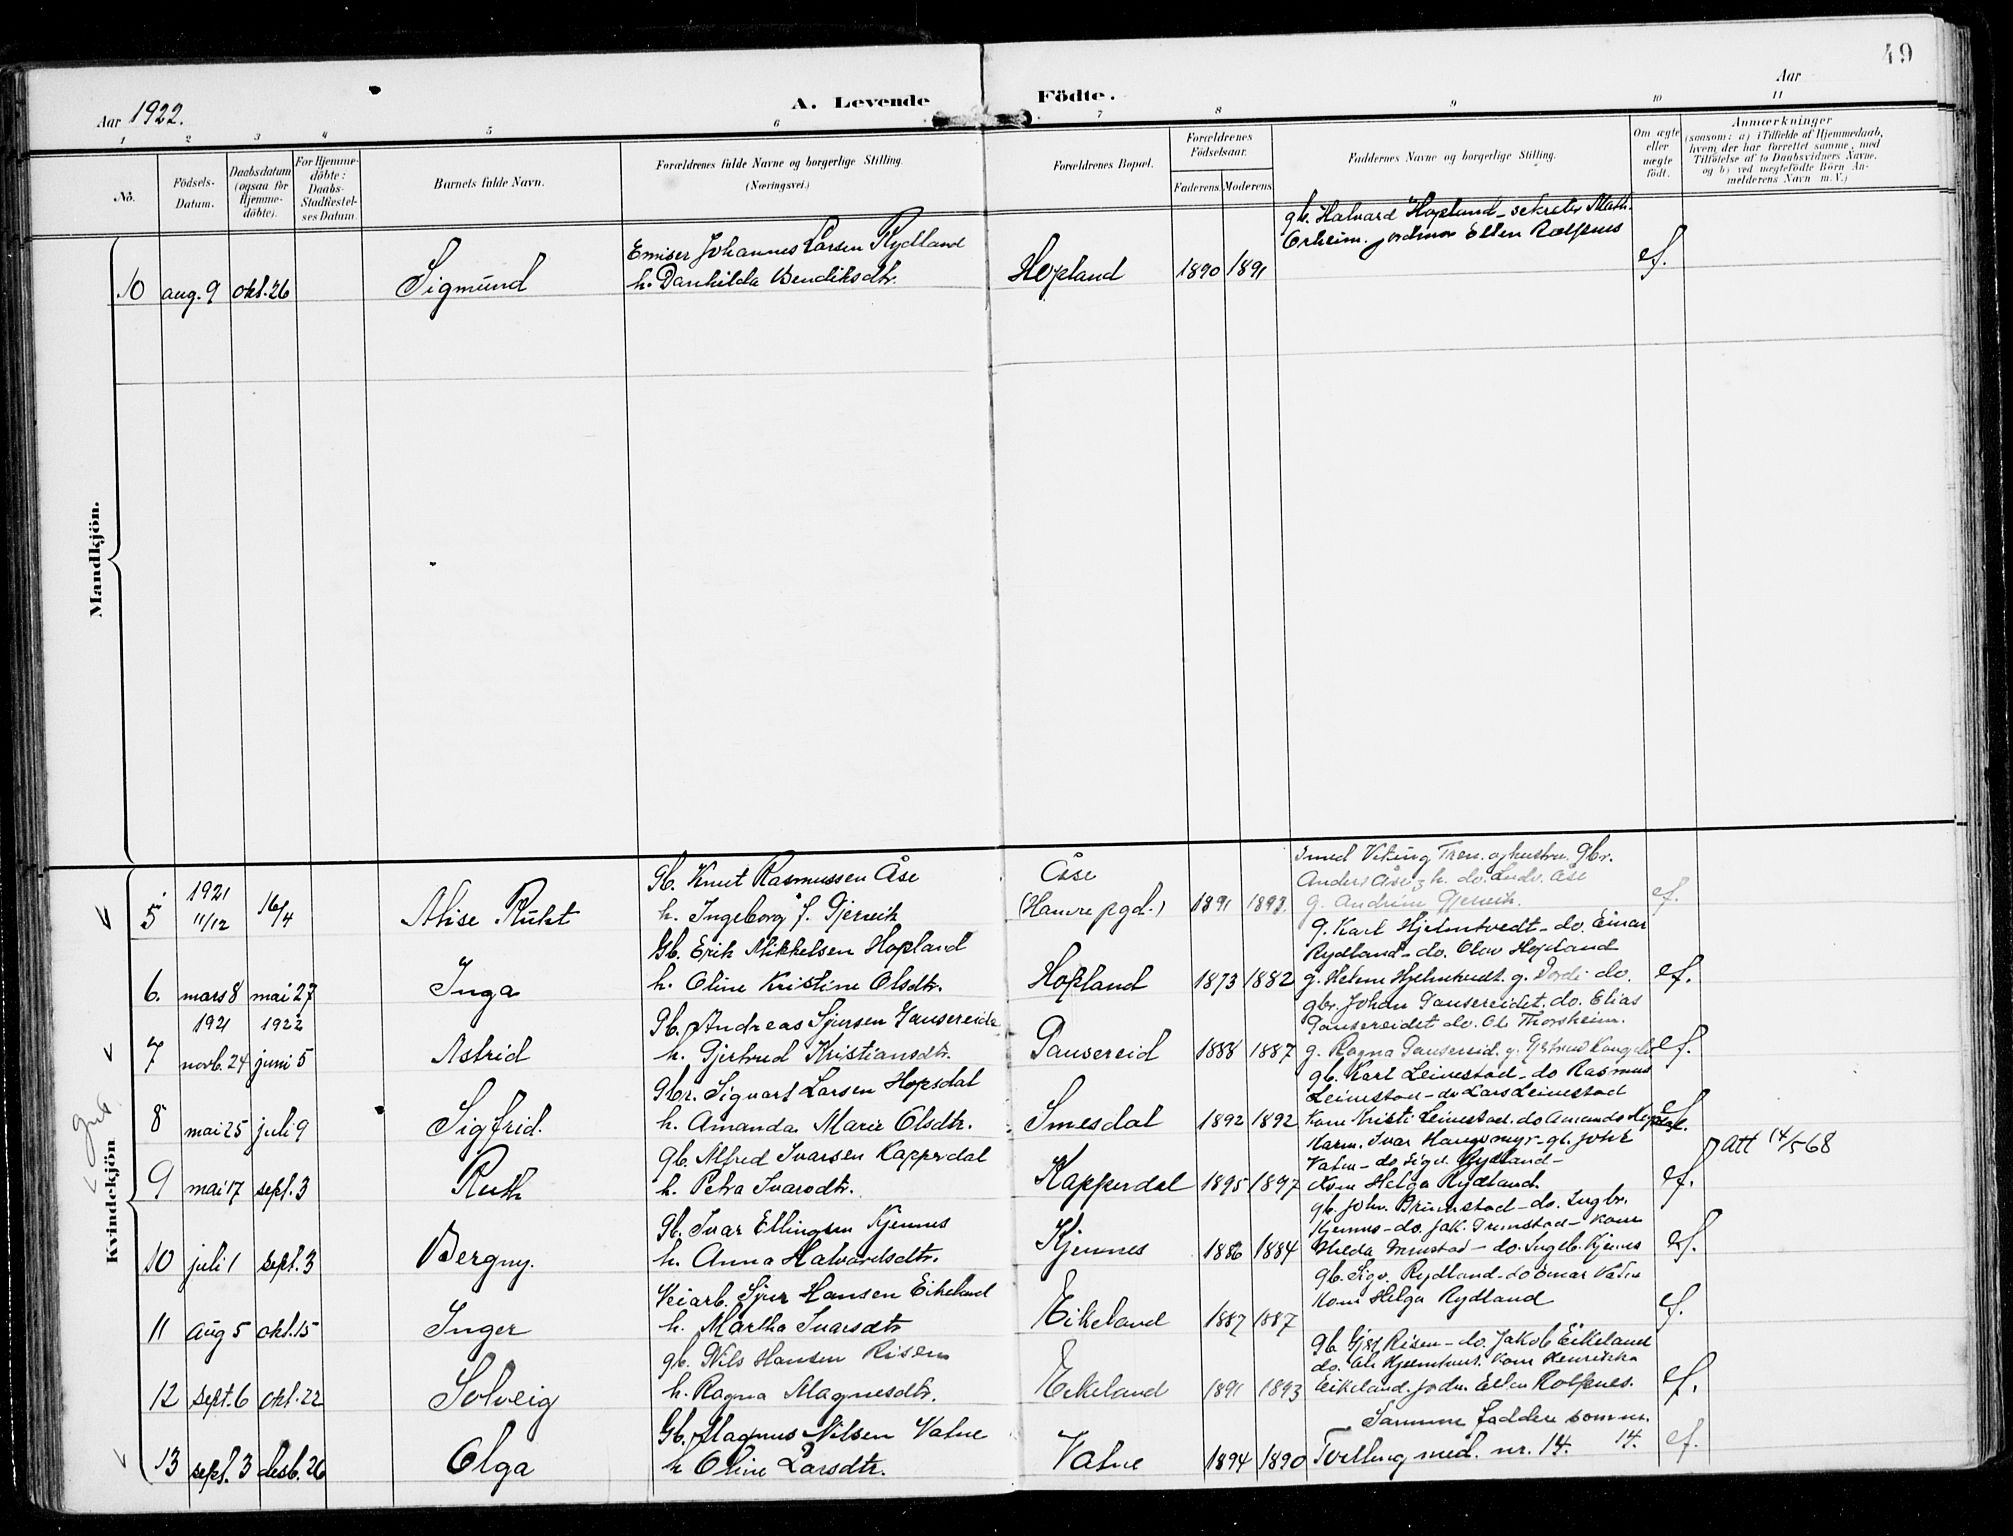 49
Aar 1922.
A. Levende Födte.
Aar
1 2 3 4 5 6 7 8 9 10 11
No.
Födsels-Datum.
Daabsdatum (ogsaa for Hjemme-döbte).
For Hjemme-döbte: Daabs-Stadfæstel-ses Datum.
Barnets fulde Navn.
Forældrenes fulde Navne og borgerlige Stilling.
(Næringsvei.)
Forældrenes Bopæl.
Forældrenes Födselsaar.
Faderens Moderens
Faddernes Navne og borgerlige Stilling.
Om ægte eller uægte födt.
Anmærkninger
(saasom: a) i Tilfælde af Hjemmedaab, hvem der har forrettet samme, med Tilföielse af to Daabsvidners Navne, og b) ved uægtefödte Börn Anmelderens Navn m. V.)
Mandkjön.
10 aug. 9 okt. 26 Sigmund
Emiser Johannes Larsen Rydland
h. Danhilda Bendiksdtr.
Hopland 1890 1891
gb. Halvard Hopland - sekretær Math.
Orheim. jordmor Ellen Rolfsnes
ef.
Kvindekjön
5 1921 11/12 16/4 Alise Ruht
Gb. Knut Rasmussen Åse
h. Ingeborg f. Gjervik
Åse
(Hamre pgd.) 1891 1893.
Smed Viking Tren. og hustru. Gbr.
Anders Åse, h. do. Ludv. Åse
g. Andrine Gjervik.
ef.
6. mars 8 mai 27 Inga
Gb. Erik Mikkelsen Hopland
h. Oline Kristine Olsdtr.
Hopland 1873 1882
g. Karl Hjelmtvedt - do. Einar
Rydland - do. Olav Hopland
g. Helene Hjelmtvedt. g. Bordi do.
ef.
7 1921 novb. 24 1922 juni 5 Astrid
Gb. Andreas Sjursen Gausereide
h. Gjertrud Kristiansdtr.
Gausereid 1888 1887
gbr. Johan Gausereidet. do. Elias
Gausereidet do. Ol. Thorsheim.
g. Ragna Gausereid. g. Gjertrud
ef.
8 mai 25 juli 9 Sigfrid.
Gbr. Sigvart Larsen Hopsdal
h. Amanda Marie Olsdtr.
Smesdal 1892 1892
gb. Karl Leinestad - do Rasmus
Leinestad - do Lars Leinestad
Kone Kristi Leinestad. do Amanda
ef.
9 mai 17 sept. 3 Ruth
gb. Alfred Ivarsen Kapperdal
h. Petra Ivarsdtr.
Kapperdal 1895 1897
Karm. Ivar Haugsmyr - gb. Johs
Vatne - do Sigv. Rydland -
Kone Helga Rydland
ef.
Att 14/5 68
10 juli 1 sept. 3 Bergny.
Gb. Ivar Ellingsen Kjennes
h. Anna Halvardsdtr.
Kjennes 1886 1884
gb. Johs. Brimstad - do. Ingbr.
Kjennes - do. Jak. Grimstad - Kone
- do. Ingeb. Kjennes
ef.
11 aug 5 okt. 15 Inger
Veiarb. Sjur Hansen Eikeland
h. Martha Ivarsdtr
Eikeland 1887 1887
gb. Sigv. Rydland - do Omar Vatne
Kone Helga Rydland
ef.
12 sept. 6 okt. 22 Solveig
gb. Nils Hansen Risen
h. Ragna Magnesdtr.
Eikeland 1891 1893
gb. Gjert Risen - do. Jakob Eikeland
do. Kone Henrikka
Eikeland. jordm. Ellen Rolfsnes.
ef.
13 sept. 3 desb. 26 Olga
Gb. Magnus Nilsen Vatne
h Oline Larsdtr.
Vatne 1894 1890
Samme faddere som nr.
14.
Tvilling med. nr. 14.
ef.